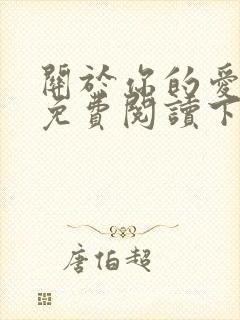 關於你的愛
免費閱讀下
唐伯超